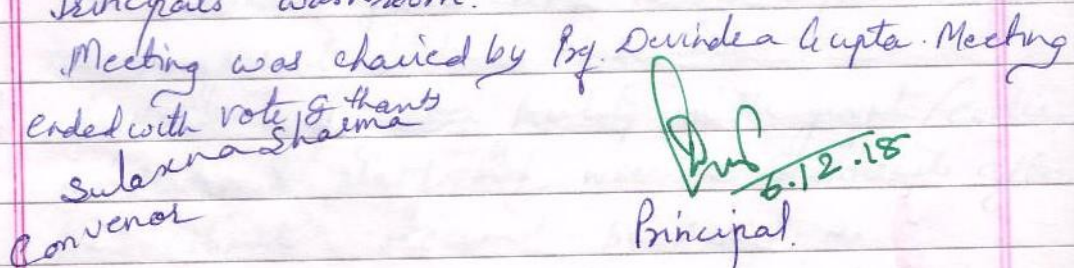 Principals washroom.
Meeting was chaired by Prof. Devinder Gupta. Meeting
ended with vote of thanks
Sulaxna Sharma
Convenor
6.12.18
Principal.